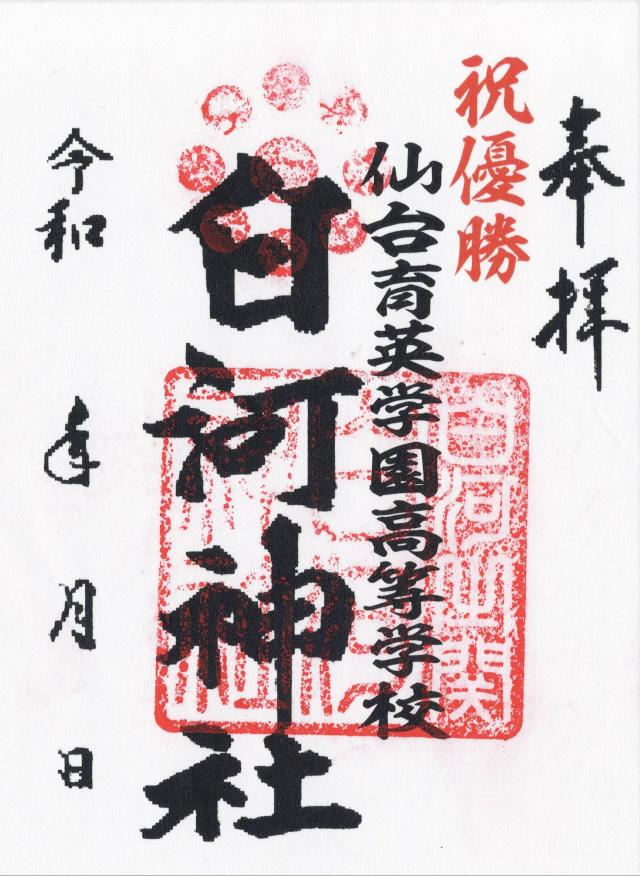 奉拝
祝優勝
仙台育英学園高等学校
白河神社
令和　年　月　日